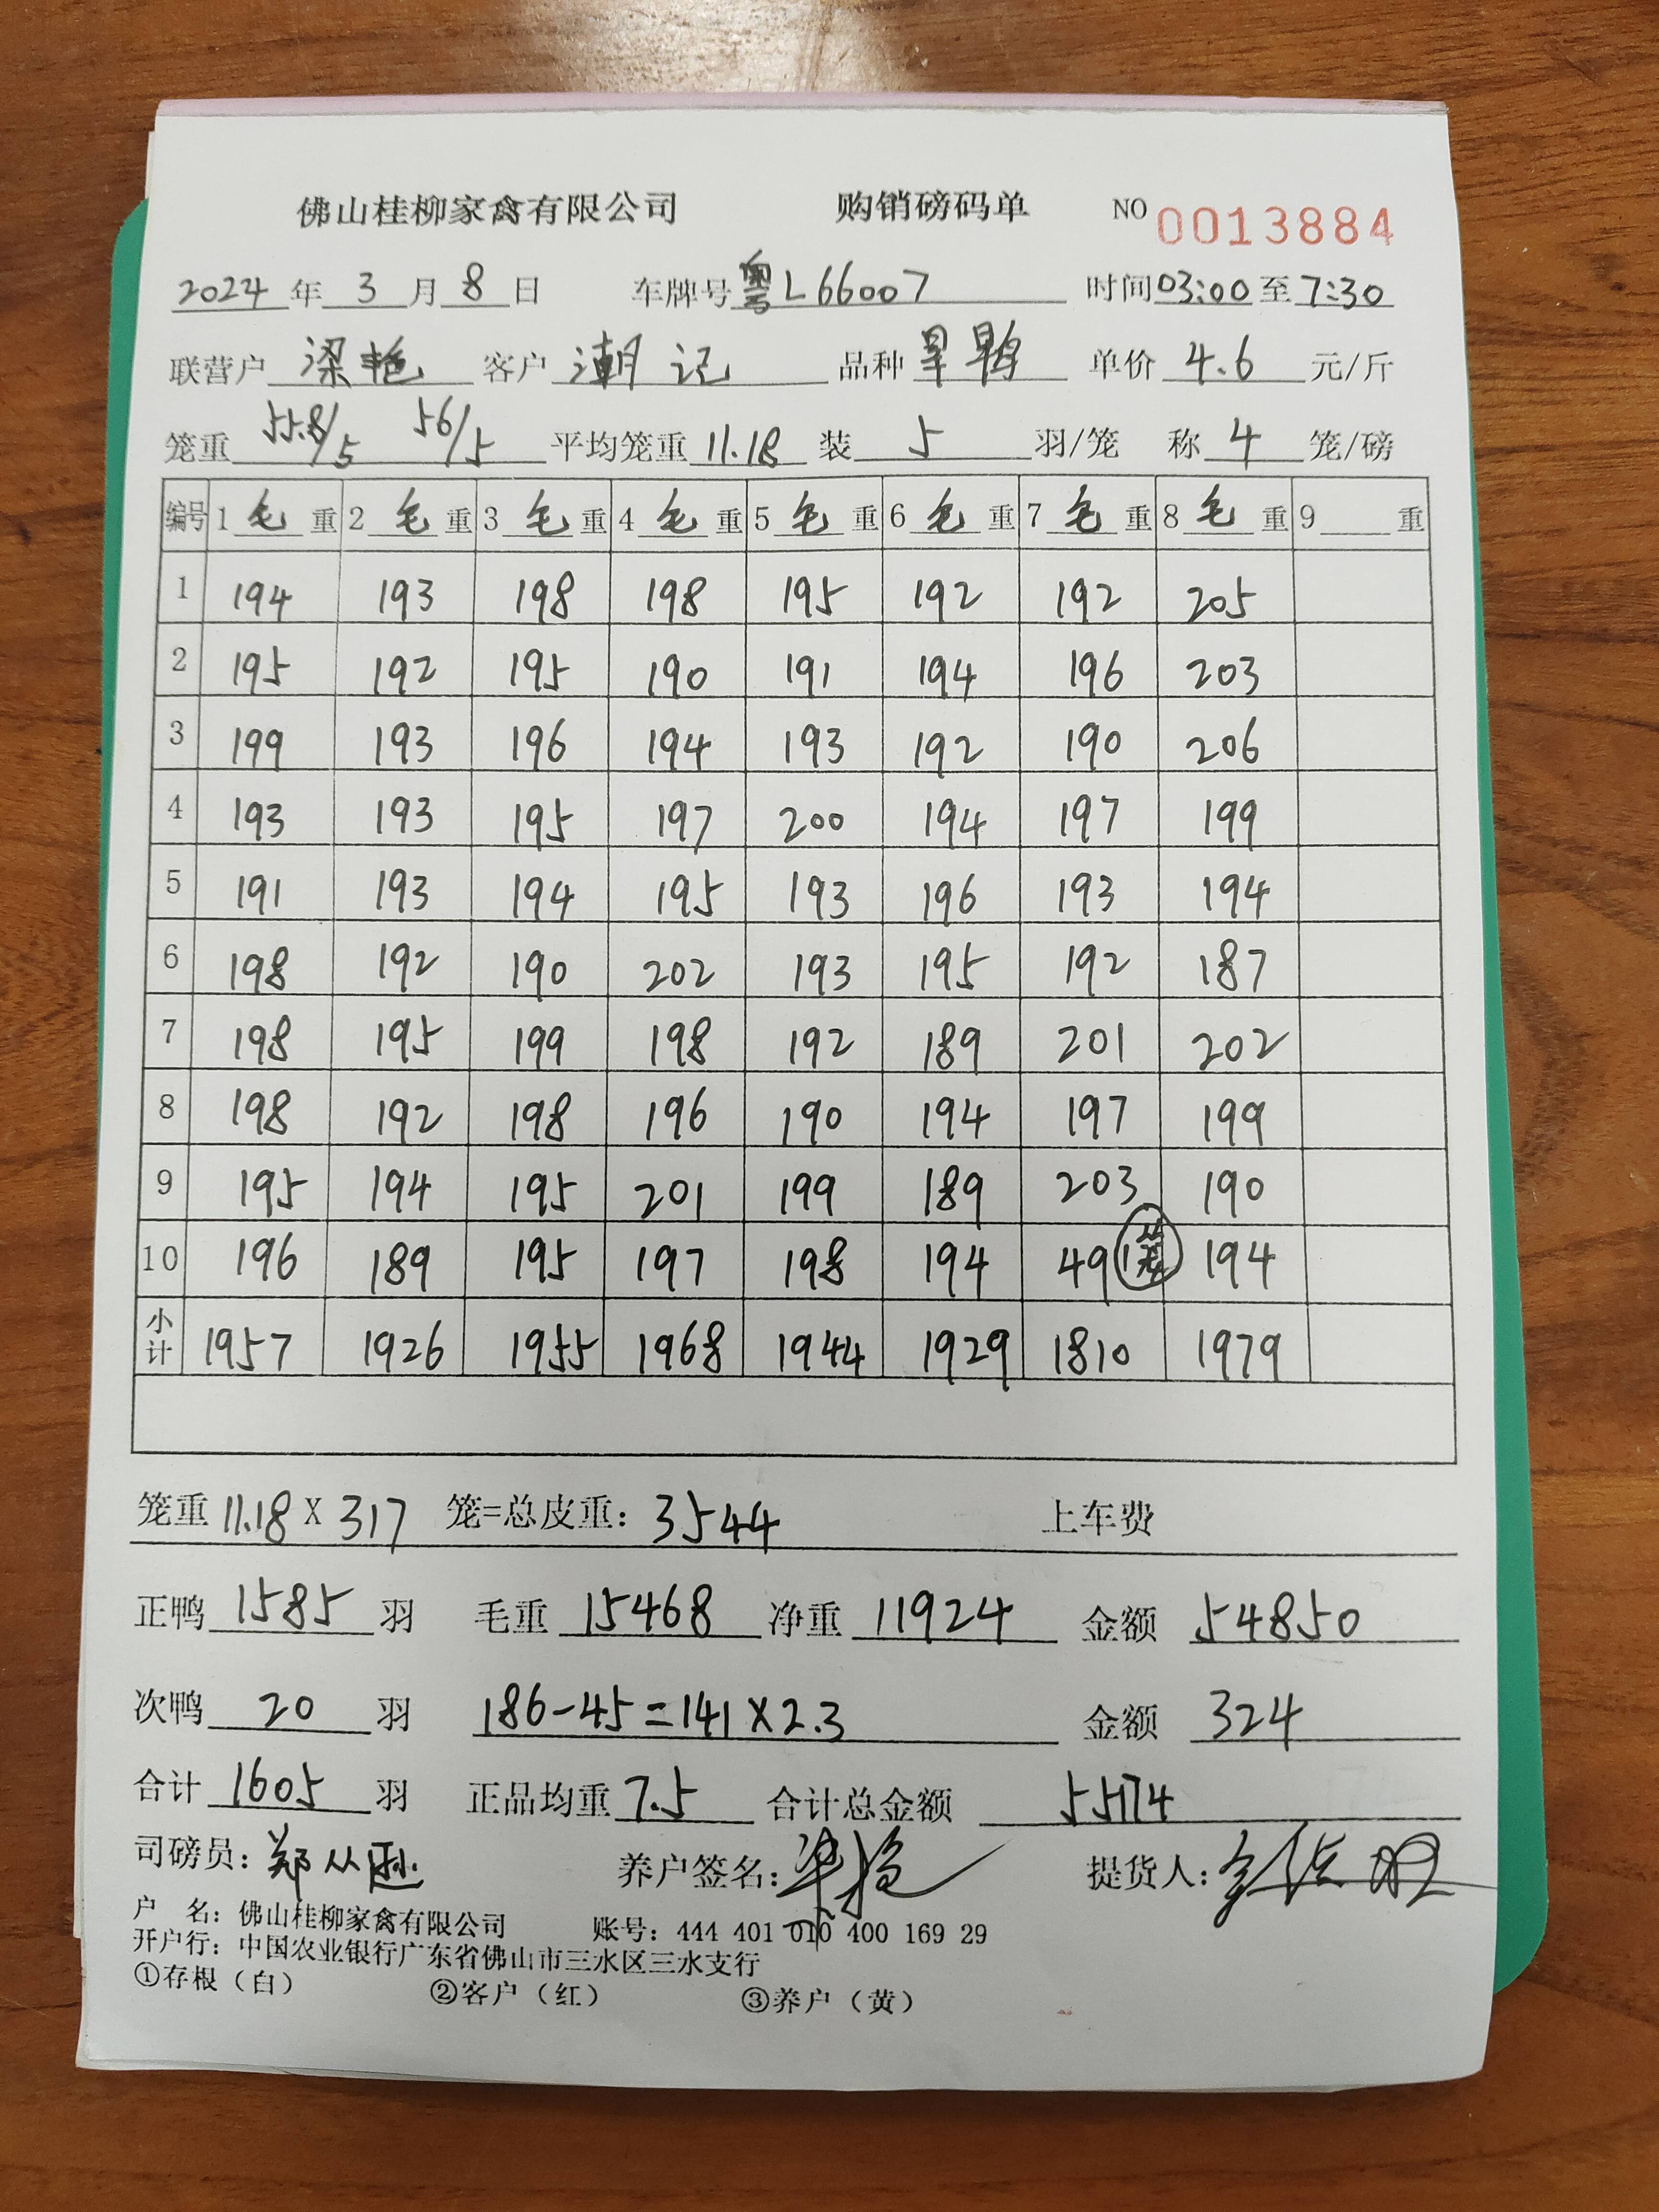 佛山桂柳家禽有限公司 购销磅码单 NO 0013884
2024 年 3 月 8 日 车牌号 粤L66007 时间 03:00 至 7:30
联营户 梁艳 客户 潮记 品种 旱鸭 单价 4.6 元/斤
笼重 55.8/5 56/5 平均笼重 11.18 装 5 羽/笼 称 4 笼/磅
编号 1 毛 重 2 毛 重 3 毛 重 4 毛 重 5 毛 重 6 毛 重 7 毛 重 8 毛 重 9 重
1 194 193 198 198 195 192 192 205
2 195 192 195 190 191 194 196 203
3 199 193 196 194 193 192 190 206
4 193 193 195 197 200 194 197 199
5 191 193 194 195 193 196 193 194
6 198 192 190 202 193 195 192 187
7 198 195 199 198 192 189 201 202
8 198 192 198 196 190 194 197 199
9 195 194 195 201 199 189 203 190
10 196 189 195 197 198 194 49 1笼 194
小计 1957 1926 1955 1968 1944 1929 1810 1979
笼重 11.18 X 317 笼=总皮重: 3544 上车费
正鸭 1585 羽 毛重 15468 净重 11924 金额 54850
次鸭 20 羽 186-45=141×2.3 金额 324
合计 1605 羽 正品均重 7.5 合计总金额 55174
司磅员: 郑从 养户签名: 梁艳 提货人:
户 名: 佛山桂柳家禽有限公司 账号: 444 401 010 400 169 29
开户行: 中国农业银行广东省佛山市三水区三水支行
①存根（白） ②客户（红） ③养户（黄）